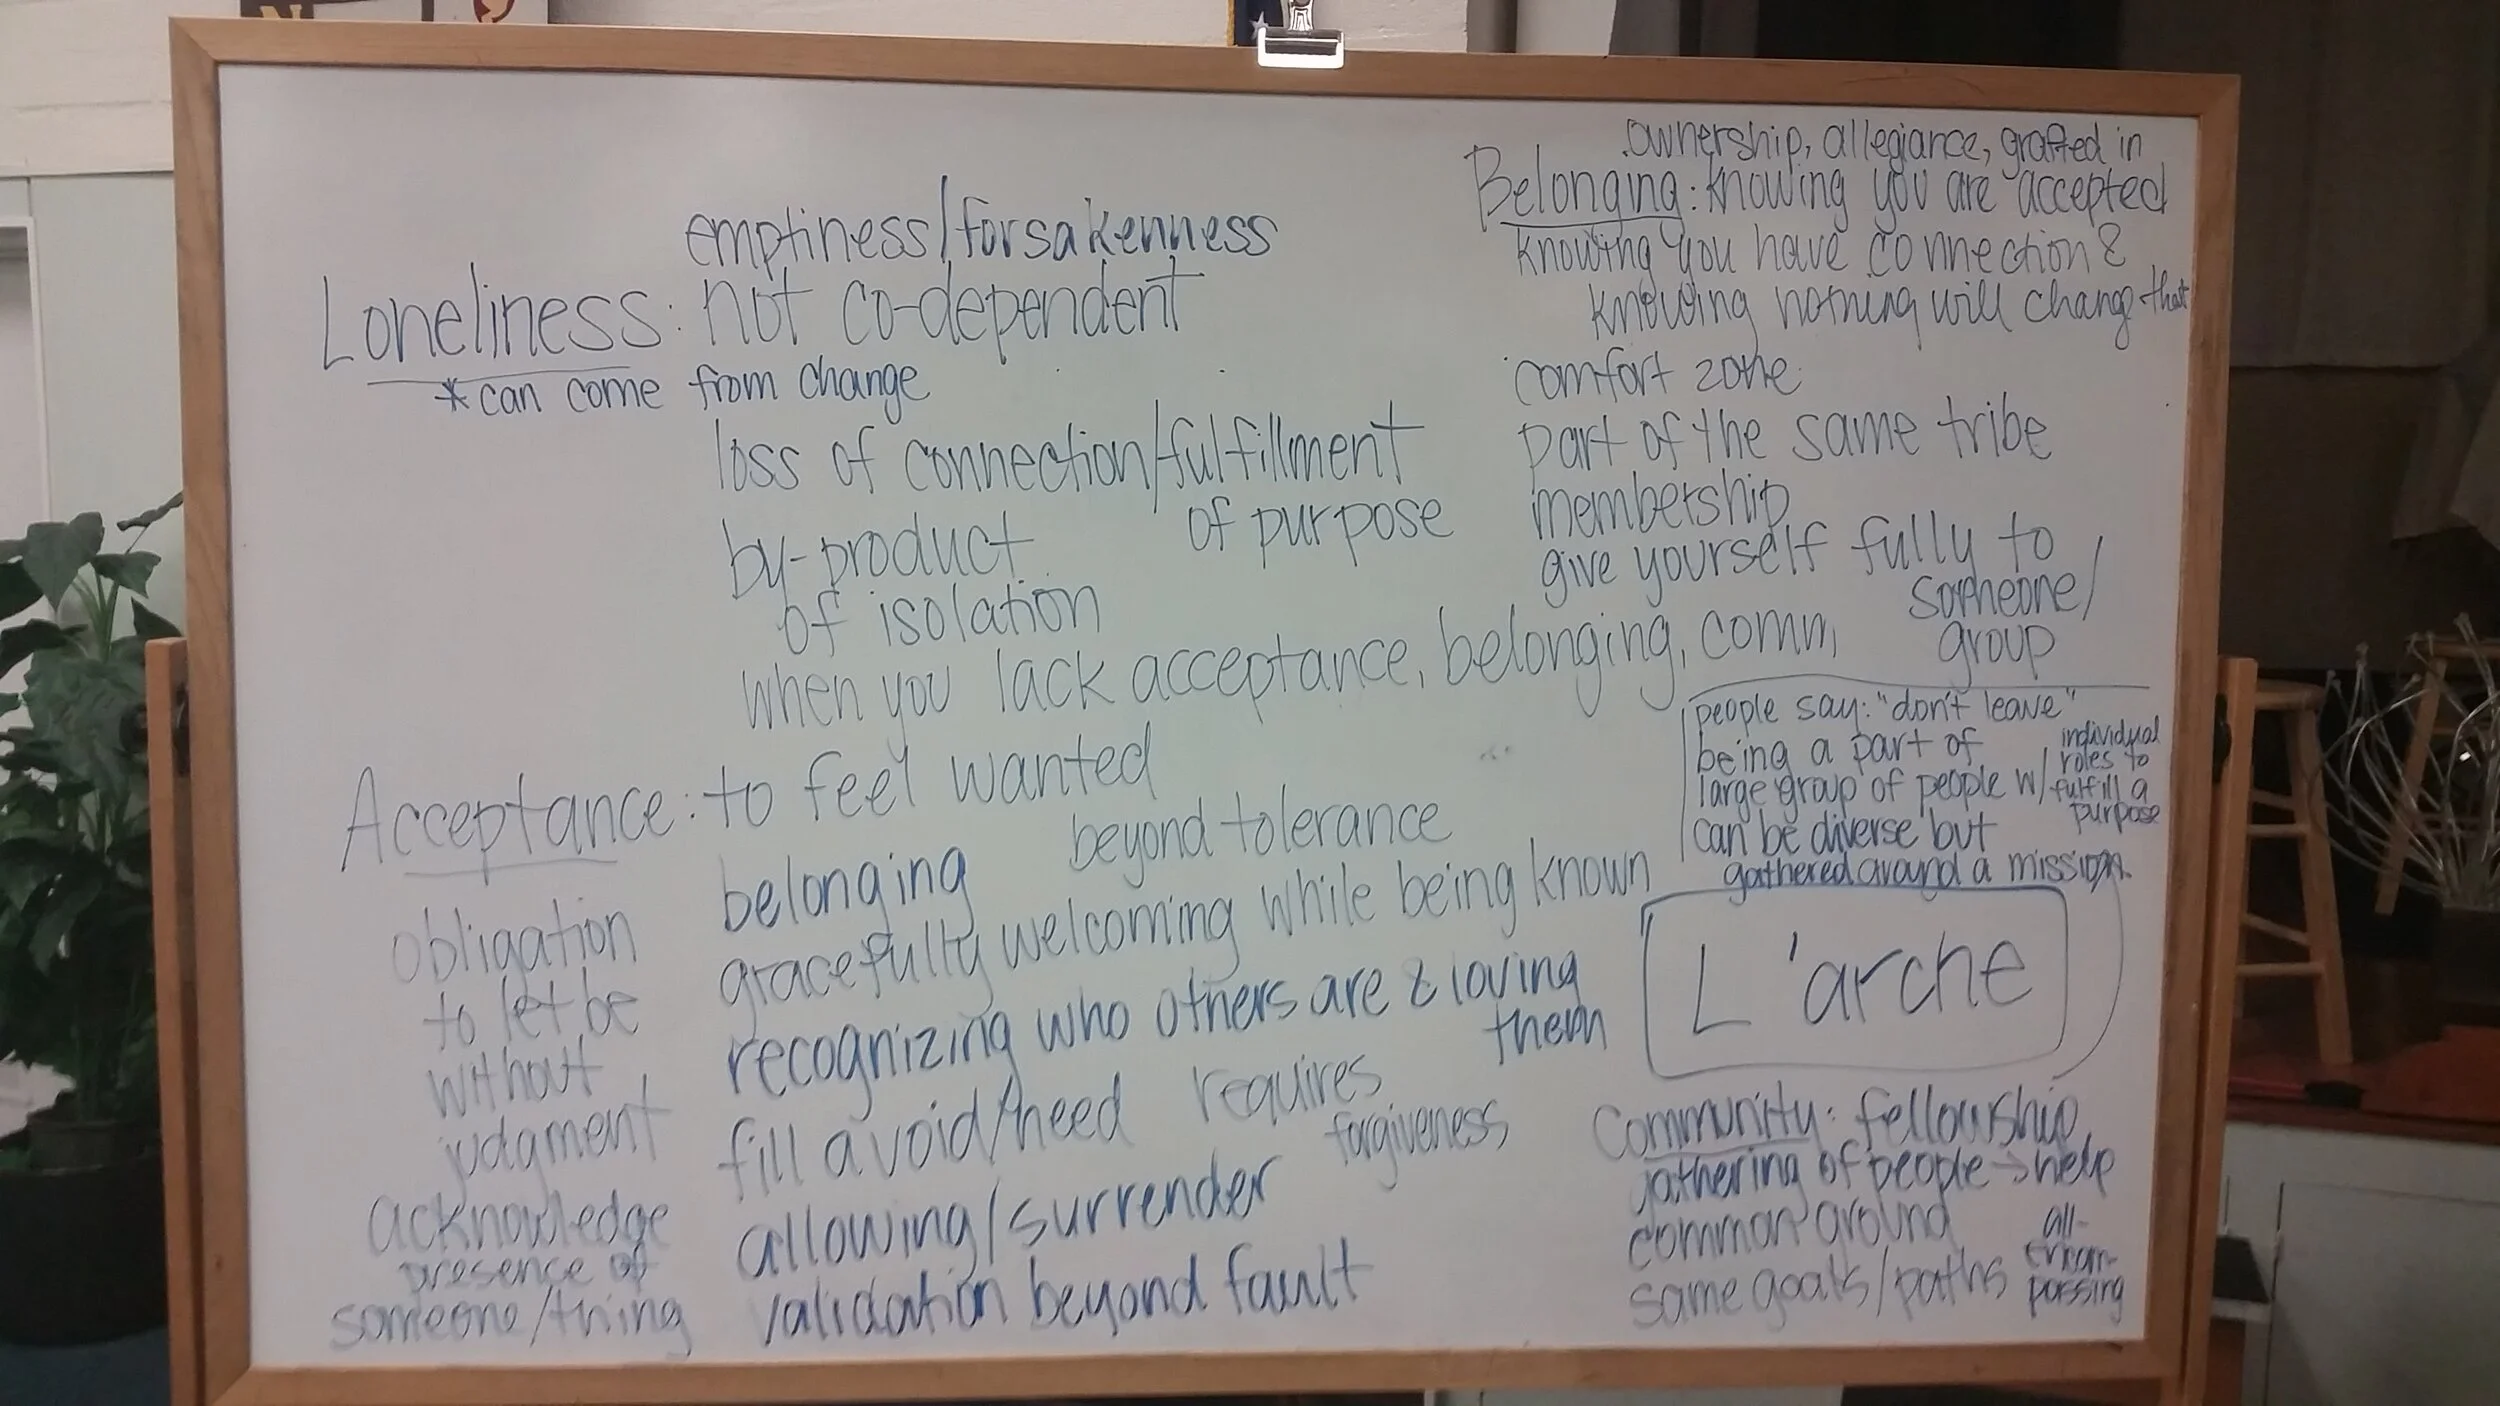 emptiness/forsakenness
Loneliness: not co-dependent
*can come from change
loss of connection/fulfillment
of purpose
by-product
of isolation
when you lack acceptance, belonging, comm
Acceptance: to feel wanted
beyond tolerance
belonging
gracefully welcoming while being known
recognizing who others are & loving
them
fill a void/need requires
forgiveness
allowing/surrender
validation beyond fault
obligation
to let be
without
judgment
acknowledge
presence of
someone/thing
.ownership, allegiance, grafted in
Belonging: knowing you are accepted
knowing you have connection &
knowing nothing will change that
comfort zone
part of the same tribe
membership
give yourself fully to
someone/
group
people say: "don't leave"
being a part of
large group of people w/
individual
roles to
fulfill a
purpose
can be diverse but
gathered around a mission.
L'arche
Community: fellowship
gathering of people → help
common ground
same goals/paths
all-
encom-
passing